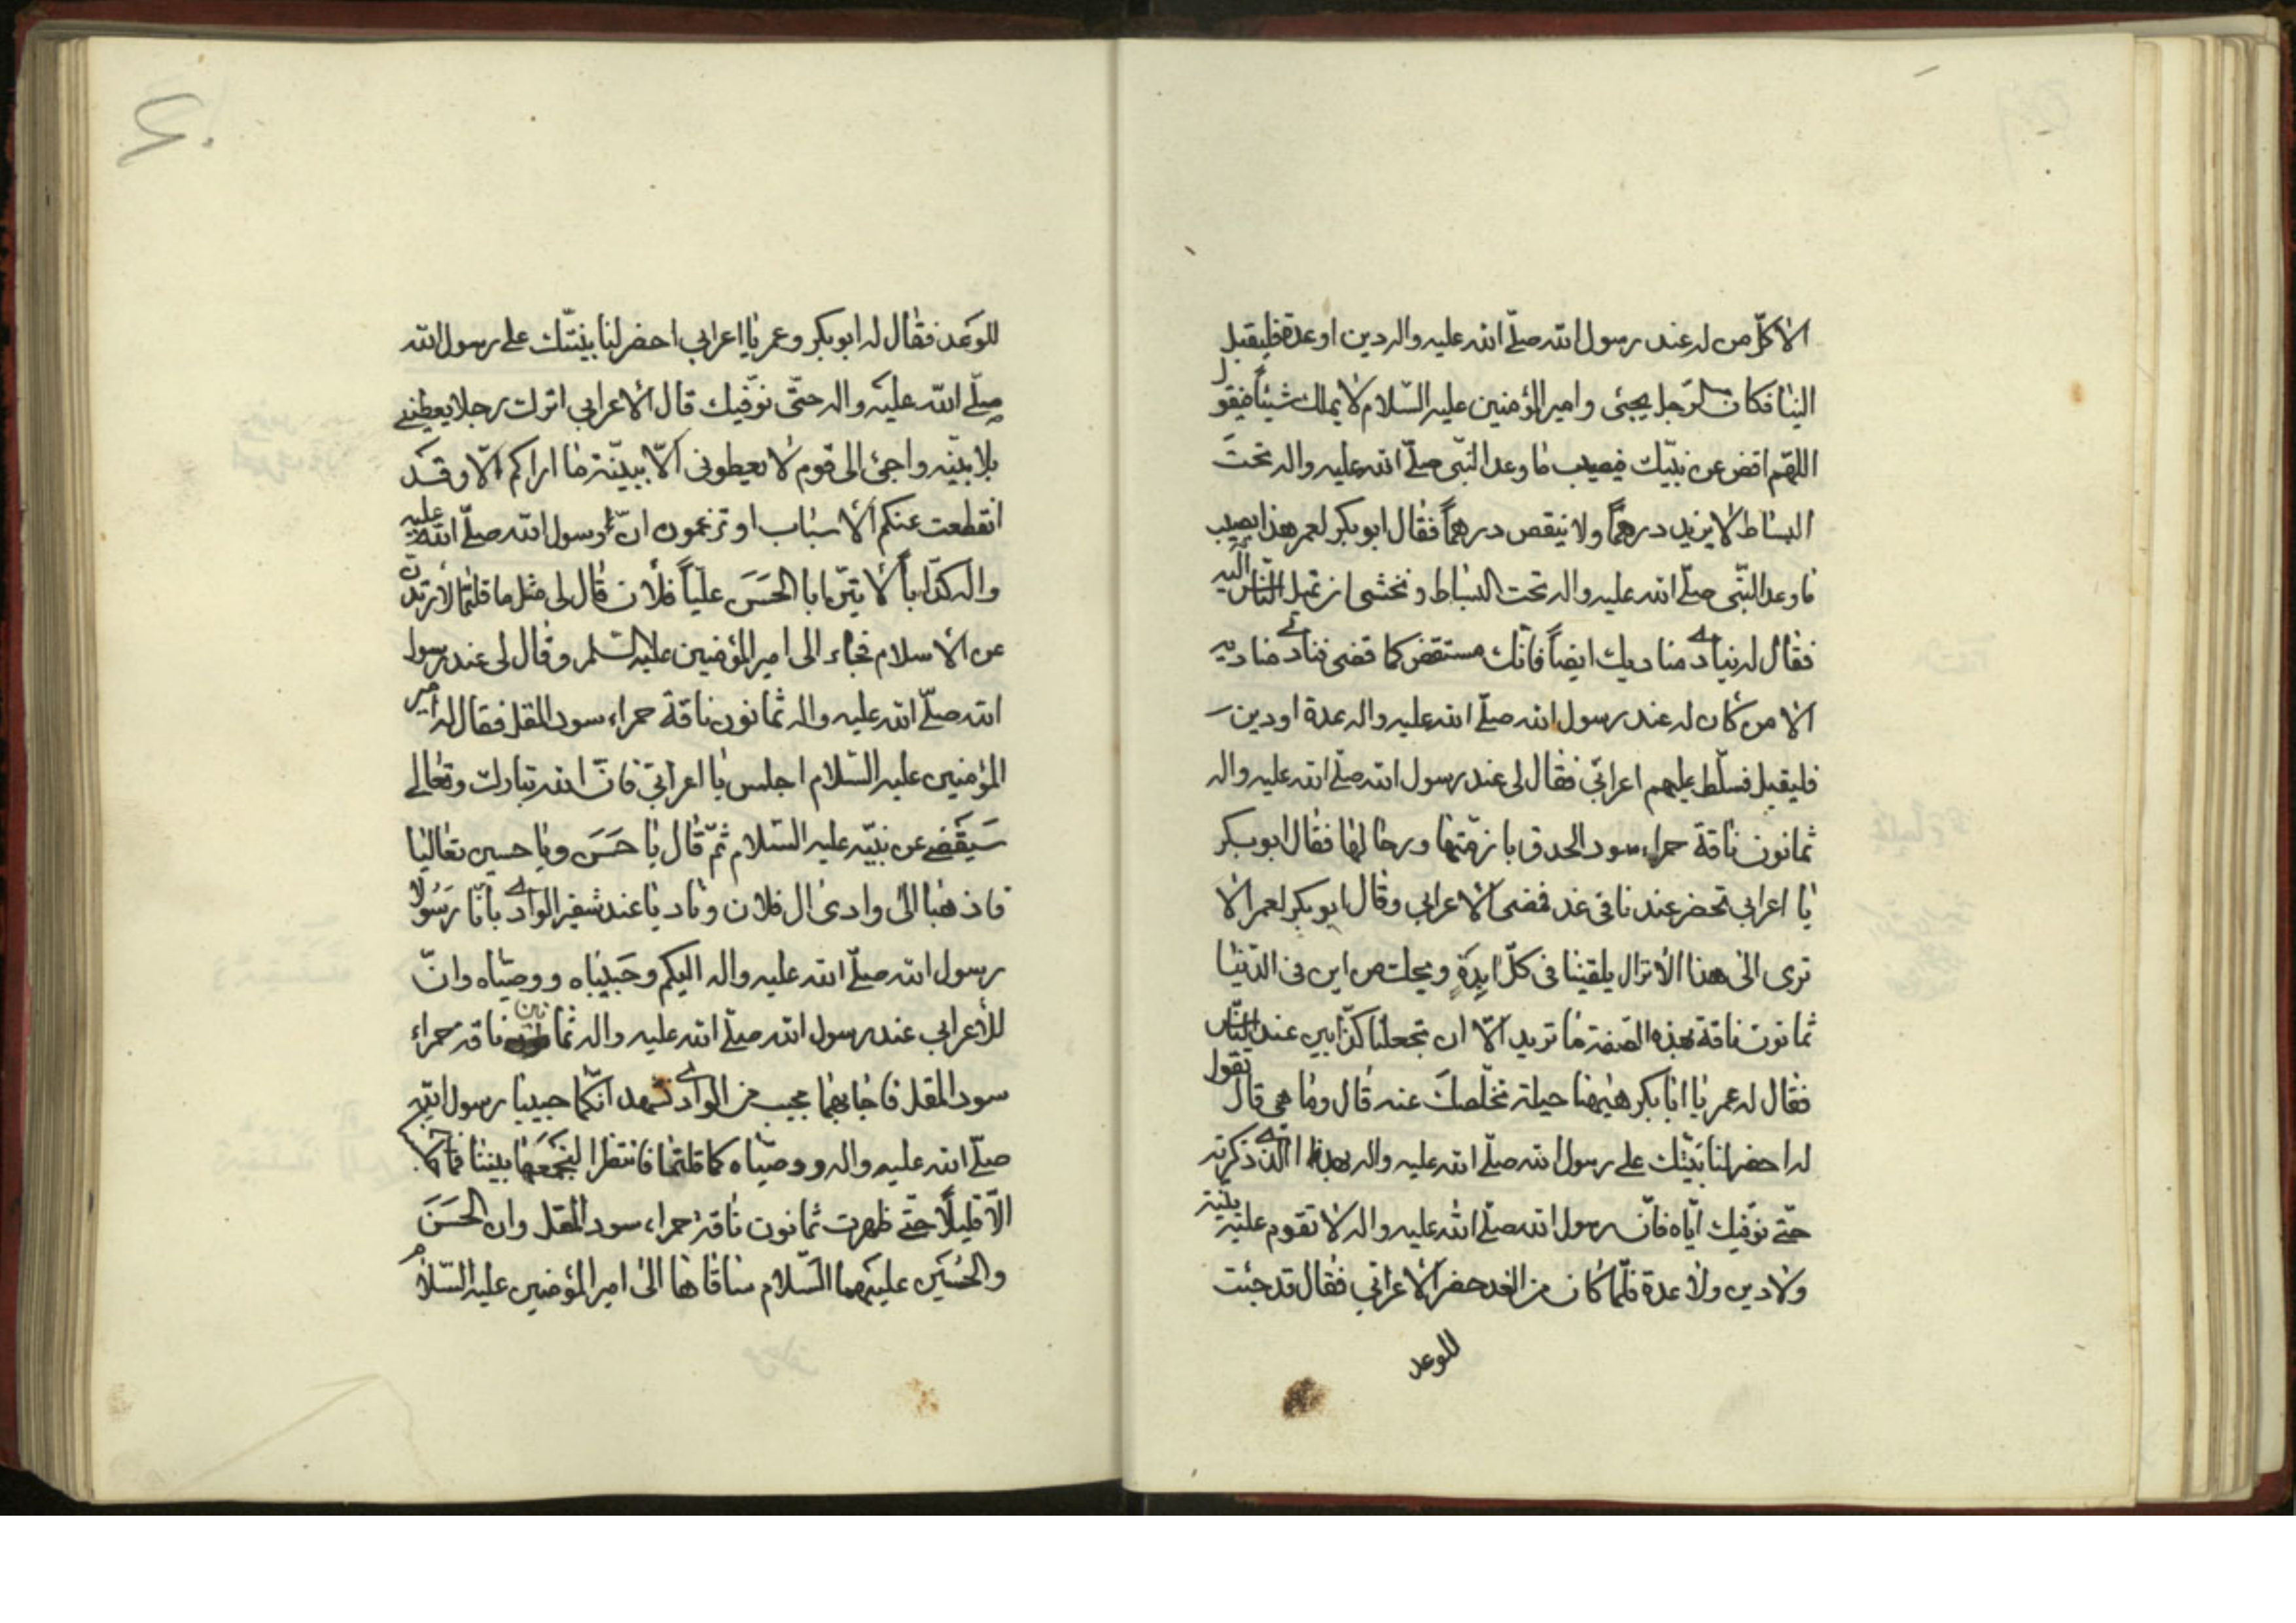 الا كلّ من له عند رسول الله صلّى الله عليه واله دين او عدة فليقبل
الينا فكان الرّجل يجئى و امير المؤمنين عليه السّلام لا يملك شيئاً فيقول
اللهم اقض عن نبيّك فيصيب ما وعد النّبى صلّى الله عليه واله تحت
البساط لا يزيد درهماً ولا ينقص درهماً فقال ابو بكر لعمر هذا يصيب
ما وعد النّبى صلّى الله عليه واله تحت البساط و نخشى ان تميل النّاس اليه
فقال له ينادى مناديك ايضاً فانّك ستقضى كما قضى فنادى مناديه
الا من كان له عند رسول الله صلّى الله عليه واله عدة او دين
فليقبل فسلّط عليهم اعرابّي فقال لى عند رسول الله صلّى الله عليه واله
ثمانون ناقة حمراء سود الحدق بازمّتها ورحالها فقال ابو بكر
يا اعرابي تحضر عندنا فى غد فمضى الاعرابي وقال ابو بكر لعمر الا
ترى الى هذا الا تزال يلقينا فى كلّ ابدة ويحك من اين فى الدّنيا
ثمانون ناقة بهذه الصفة ما تريد الّا ان تجعلنا كذّابين عند النّاس
فقال له عمر يا ابا بكر هيهنا حيلة تخلّصك عنه قال وما هى قال تقول
له احضر لنا بيّنتك على رسول الله صلّى الله عليه واله بهذا الذى ذكرته
حتّى نوّفيك ايّاه فانّ رسول الله صلّى الله عليه واله لا تقوم عليه بيّنة
ولا دين ولا عدة فلمّا كان من الغد حضر الاعرابّي فقال قد جئت
للوعد
للوعد فقال له ابو بكر وعمر يا اعرابي احضر لنا بيّنتك على رسول الله
صلّى الله عليه واله حتّى نوّفيك قال الاعرابي اترك رجلا يعطينى
بلا بيّنه واجئ الى قوم لا يعطونى الّا ببيّنة ما اراكم الّا وقد
انقطعت عنكم الاسباب او تزعمون انّ رسول الله صلّى الله عليه
واله كذّاباً لاتينّ ابا الحسن عليّاً فلان قال لى مثل ما قلتما لارتدن
عن الاسلام فجاء الى امير المؤمنين عليه السّلم وقال لى عند رسول
الله صلّى الله عليه واله ثمانون ناقة حمراء سود المقل فقال له امير
المؤمنين عليه السّلام اجلس يا اعرابّي فانّ الله تبارك وتعالى
سيقضى عن نبيّه عليه السّلام ثمّ قال يا حسن ويا حسين تعاليا
فاذهبا الى وادى ال فلان وناديا عند شفير الوادى بانّا رسولا
رسول الله صلّى الله عليه واله اليكم وحبيباه ووصيّاه وانّ
للأعرابي عند رسول الله صلّى الله عليه واله ثمانين ناقة حمراء
سود المقل فاجابهما مجيب من الوادى نشهد انّكما حبيبا رسول الله
صلّى الله عليه واله ووصيّاه كما قلتما فانتظرا لنجمعها بيننا فما كان
الّا قليلاً حتّى ظهرت ثمانون ناقة حمراء سود المقل وان الحسن
والحسين عليهما السّلام ساقاها الى امير المؤمنين عليه السّلام